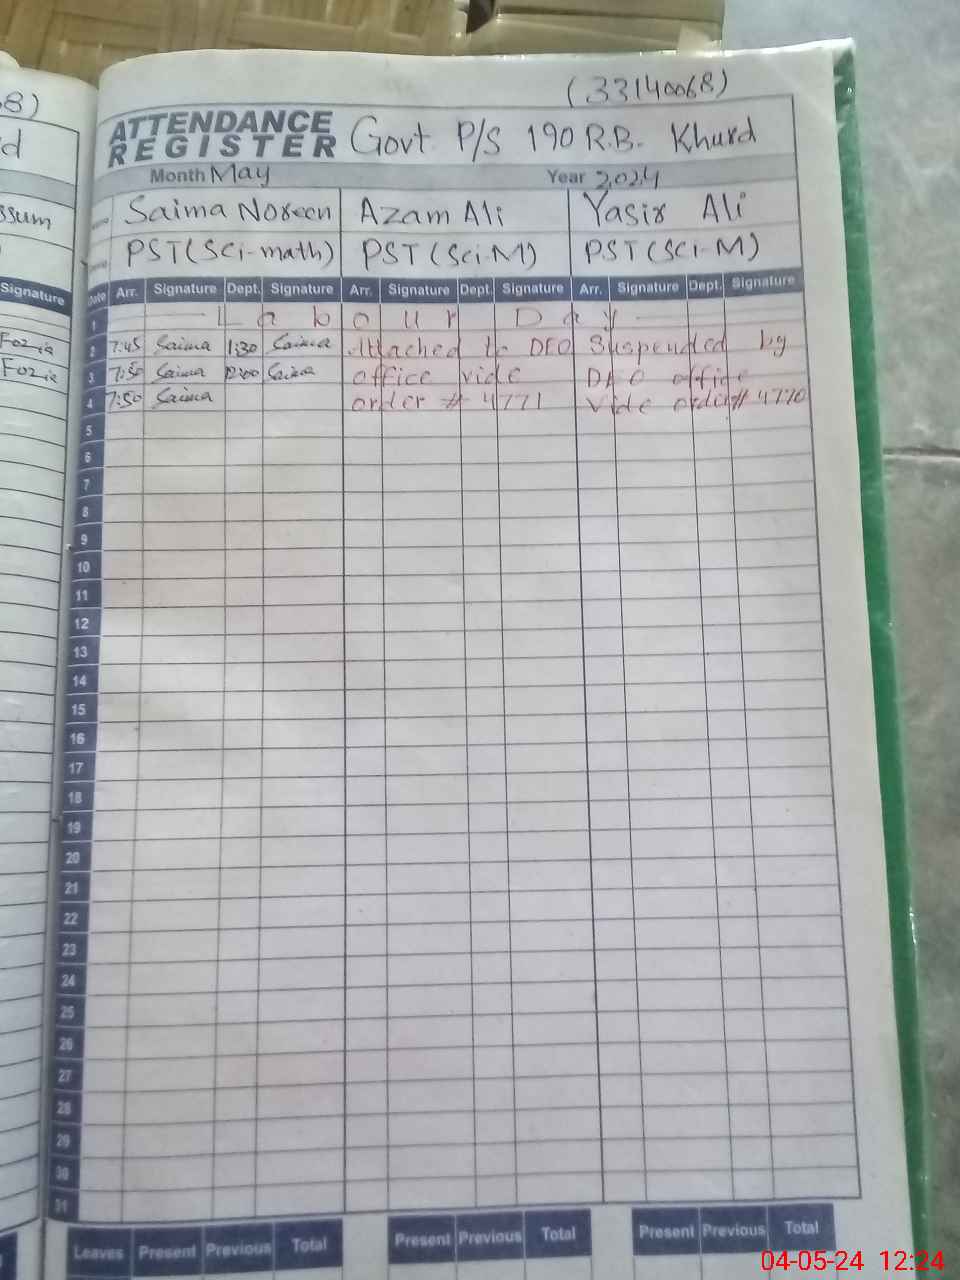 8)
(33140068)
d
ATTENDANCE REGISTER Govt. P/S 190 R.B. Khurd
Month May Year 2024
ssum
Saima Noreen Azam Ali Yasir Ali
PST(Sci-math) PST(Sci-M) PST(Sci-M)
Signature
Date Arr. Signature Dept. Signature Arr. Signature Dept. Signature Arr. Signature Dept. Signature
1 Labour Day
Fozia 2 7:45 Saima 1:30 Saima Attached to DEO Suspended by
Fozia 3 7:50 Saima 12:00 Saima office vide DEO office
4 7:50 Saima order # 4771 vide order # 4770
5
6
7
8
9
10
11
12
13
14
15
16
17
18
19
20
21
22
23
24
25
26
27
28
29
30
31
Leaves Present Previous Total Present Previous Total Present Previous Total
04-05-24 12:24